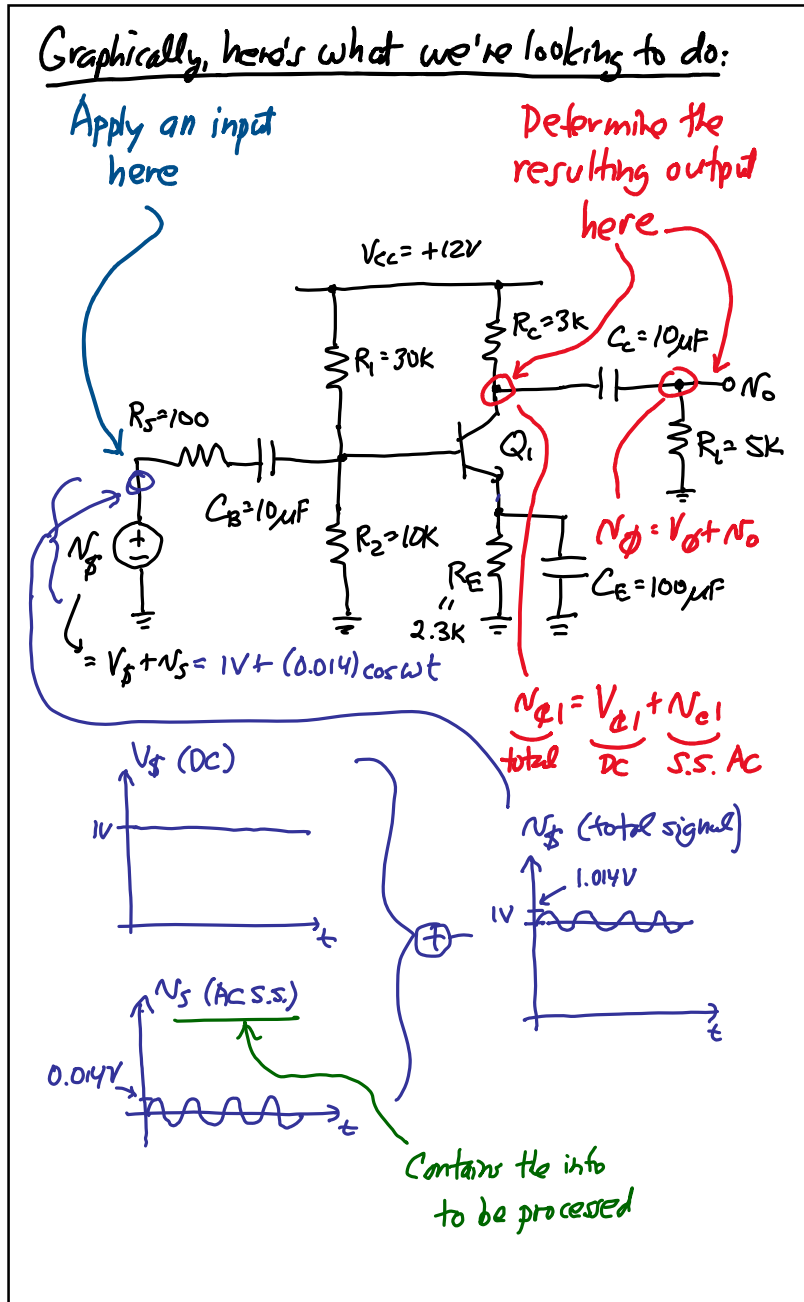 Graphically, here's what we're looking to do:
Apply an input
here
Determine the
resulting output
here
Vcc = +12V
R1 = 30K
Rc = 3K
Cc = 10μF
vo
Rs = 100
CB = 10μF
Q1
RL = 5K
R2 = 10K
RE
"
2.3K
CE = 100μF
vØ = VØ + vo
v$
+
−
= V$ + vs = 1V + (0.014) cos ωt
v₵1 = V₵1 + vc1
total DC S.S. AC
V$ (DC)
1V
t
+
v$ (total signal)
1.014V
1V
t
vs (AC S.S.)
0.014V
t
Contains the info
to be processed